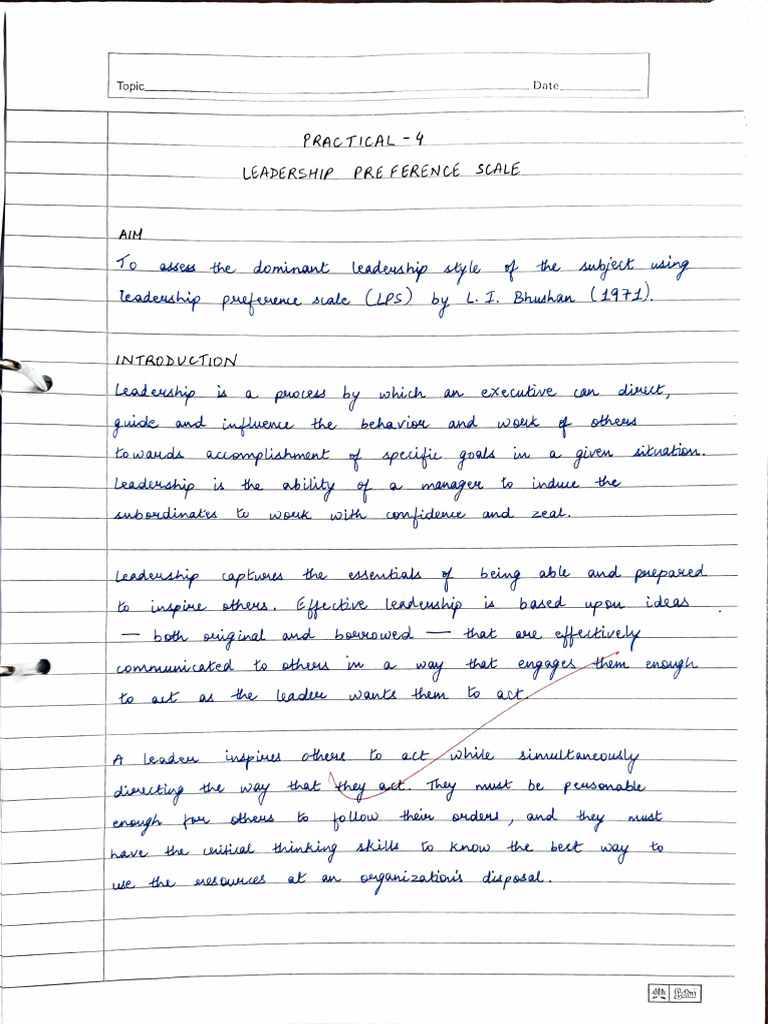 Topic Date
PRACTICAL - 4
LEADERSHIP PREFERENCE SCALE
AIM
To assess the dominant leadership style of the subject using
leadership preference scale (LPS) by L. I. Bhushan (1971).
INTRODUCTION
Leadership is a process by which an executive can direct,
guide and influence the behavior and work of others
towards accomplishment of specific goals in a given situation.
Leadership is the ability of a manager to induce the
subordinates to work with confidence and zeal.
Leadership captures the essentials of being able and prepared
to inspire others. Effective leadership is based upon ideas
— both original and borrowed — that are effectively
communicated to others in a way that engages them enough
to act as the leader wants them to act.
A leader inspires others to act while simultaneously
directing the way that they act. They must be personable
enough for others to follow their orders, and they must
have the critical thinking skills to know the best way to
use the resources at an organization's disposal.
Lotus